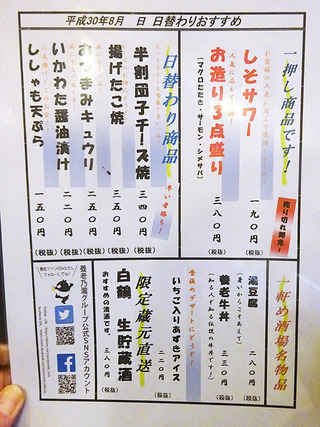 平成30年8月 日 日替わりおすすめ
一押し商品です!
しそサワー
一九〇円
(税抜)
売り切れ御免!
お造り3点盛り
(マグロたたき・サーモン・シメサバ)
三八〇円
(税抜)
日替わり商品
早い者勝ち!
半割団子チーズ焼
三四〇円
(税抜)
揚げたこ焼
三五〇円
(税抜)
おつまみキュウリ
二五〇円
(税抜)
いかわた醤油漬け
二二〇円
(税抜)
ししゃも天ぷら
一五〇円
(税抜)
一軒め酒場名物品
湯豆腐
(暑いからこそあえて)
二八〇円
(税抜)
養老牛丼
(知る人ぞ知る伝説の牛丼です!)
三三〇円
(税抜)
食後のデザートにどうぞ!
いちご入りあずきアイス
二二〇円
(税抜)
限定蔵元直送
白鶴 生貯蔵酒
おすすめの清酒です。
三八〇円
(税抜)
養老ファンのみなさん
フォローしてね!
養老乃瀧グループ公式SNSアカウント